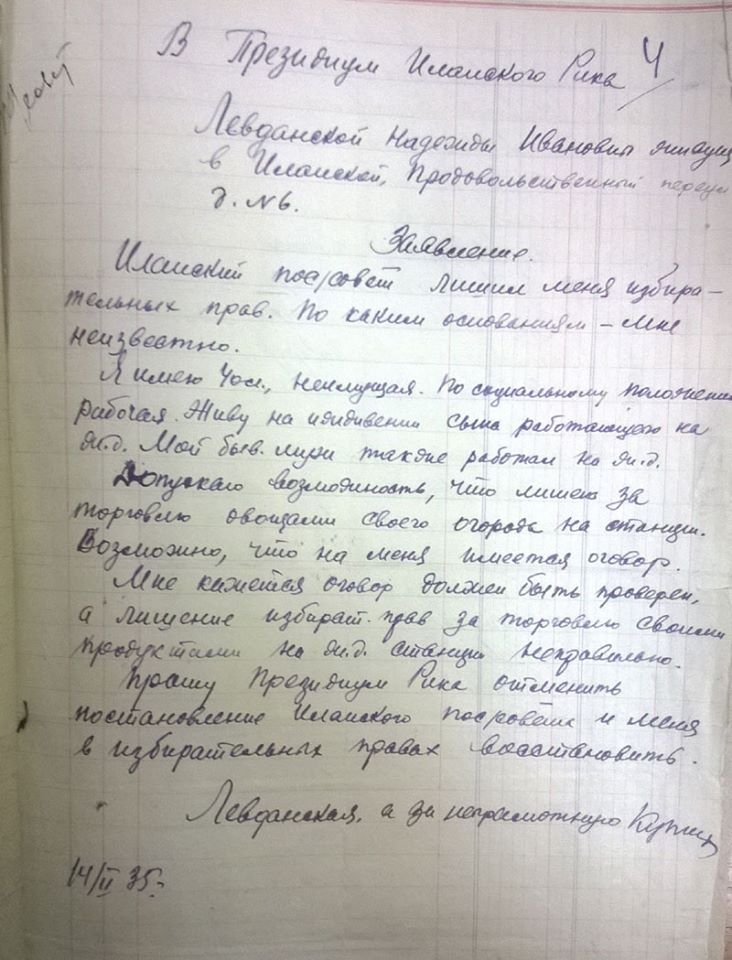 В Президиум Иланского Рика 4
Левданской Надежды Ивановны живущ
в Иланской, Продовольственный переул
д. № 6.
Заявление.
Иланский пос/совет лишил меня избира-
тельных прав. По каким основаниям – мне
неизвестно.
Я имею , неимущая. По социальному положению
рабочая. Живу на иждивении сына работающего на
ж.д. Мой быв. муж также работал на ж.д.
Допускаю возможность, что лишена за
торговлю овощами своего огорода на станции.
Возможно, что на меня имеется оговор.
Мне кажется оговор должен быть проверен,
а лишение избират. прав за торговлю своими
продуктами на ж.д. станции неправильно.
Прошу Президиум Рика отменить
постановление Иланского пос/совета и меня
в избирательных правах восстановить.
Левданская, а за неграмотную
14/II 35г.